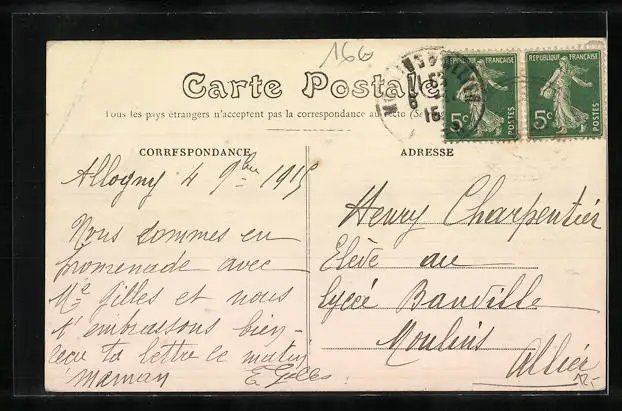 166
Carte Postale
Tous les pays étrangers n'acceptent pas la correspondance au recto
CORRESPONDANCE
Allogny 4 9bre 1915
Nous sommes en
promenade avec
Me Gilles et nous
t'embrassons bien-
reçu ta lettre ce matin
Maman E Gilles
ADRESSE
Henry Charpentier
Elève au
Lycée Banville
Moulins
Allier
REPUBLIQUE FRANÇAISE
5c
POSTES
REPUBLIQUE FRANÇAISE
5c
POSTES